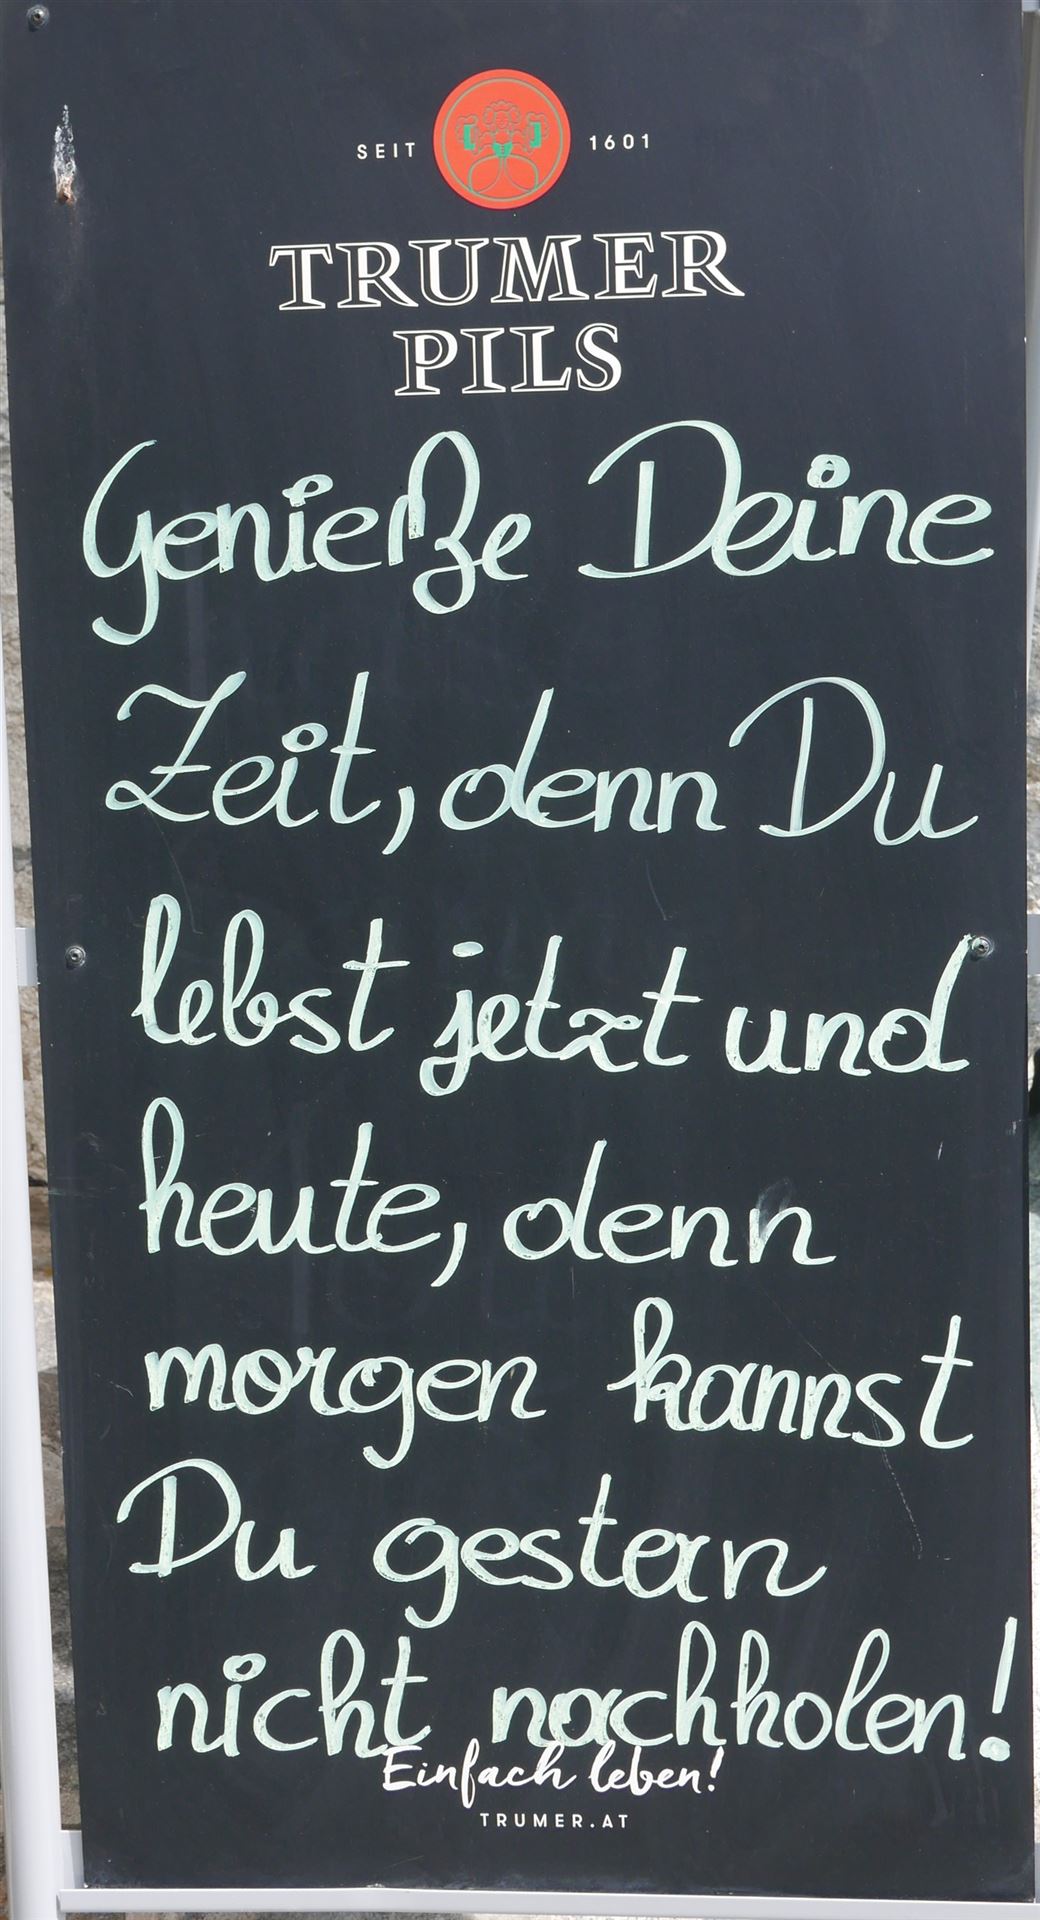 SEIT 1601
TRUMER
PILS
Genieße Deine
Zeit, denn Du
lebst jetzt und
heute, denn
morgen kannst
Du gestern
nicht nachholen!
Einfach leben!
TRUMER.AT